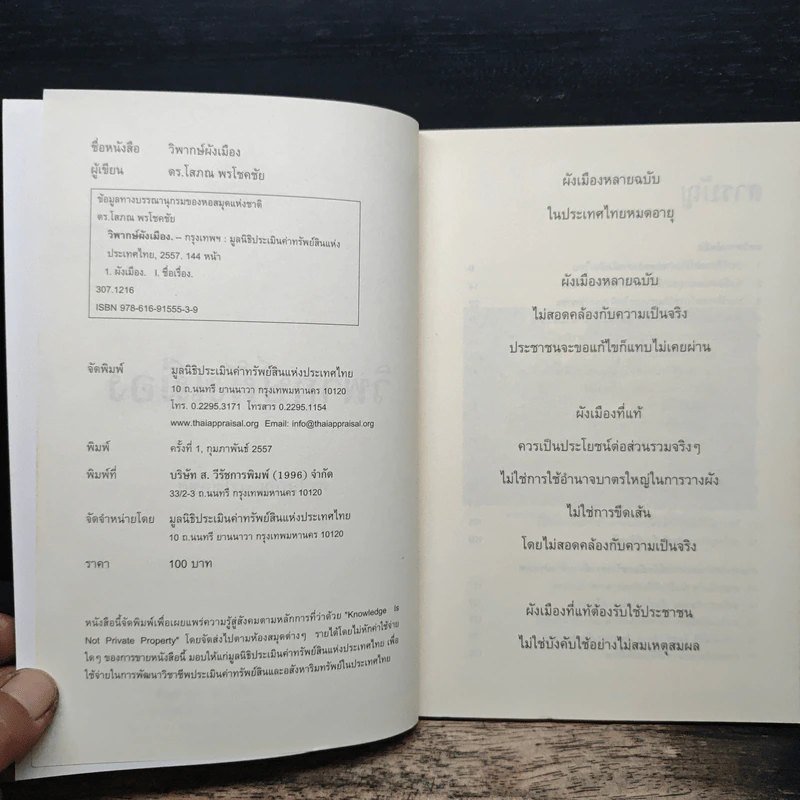 ชื่อหนังสือ วิพากษ์ผังเมือง
ผู้เขียน ดร.โสภณ พรโชคชัย
ข้อมูลทางบรรณานุกรมของหอสมุดแห่งชาติ
ดร.โสภณ พรโชคชัย
วิพากษ์ผังเมือง. – กรุงเทพฯ : มูลนิธิประเมินค่าทรัพย์สินแห่ง
ประเทศไทย, 2557. 144 หน้า
1. ผังเมือง. I. ชื่อเรื่อง.
307.1216
ISBN 978-616-91555-3-9
จัดพิมพ์ มูลนิธิประเมินค่าทรัพย์สินแห่งประเทศไทย
10 ถ.นนทรี ยานนาวา กรุงเทพมหานคร 10120
โทร. 0.2295.3171 โทรสาร 0.2295.1154
www.thaiappraisal.org Email: info@thaiappraisal.org
พิมพ์ ครั้งที่ 1, กุมภาพันธ์ 2557
พิมพ์ที่ บริษัท ส. วีรัชการพิมพ์ (1996) จำกัด
33/2-3 ถ.นนทรี กรุงเทพมหานคร 10120
จัดจำหน่ายโดย มูลนิธิประเมินค่าทรัพย์สินแห่งประเทศไทย
10 ถ.นนทรี ยานนาวา กรุงเทพมหานคร 10120
ราคา 100 บาท
หนังสือนี้จัดพิมพ์เพื่อเผยแพร่ความรู้สู่สังคมตามหลักการที่ว่าด้วย "Knowledge Is
Not Private Property" โดยจัดส่งไปตามห้องสมุดต่างๆ รายได้โดยไม่หักค่าใช้จ่าย
ใดๆ ของการขายหนังสือนี้ มอบให้แก่มูลนิธิประเมินค่าทรัพย์สินแห่งประเทศไทย เพื่อ
ใช้จ่ายในการพัฒนาวิชาชีพประเมินค่าทรัพย์สินและอสังหาริมทรัพย์ในประเทศไทย
ผังเมืองหลายฉบับ
ในประเทศไทยหมดอายุ
ผังเมืองหลายฉบับ
ไม่สอดคล้องกับความเป็นจริง
ประชาชนจะขอแก้ไขก็แทบไม่เคยผ่าน
ผังเมืองที่แท้
ควรเป็นประโยชน์ต่อส่วนรวมจริงๆ
ไม่ใช่การใช้อำนาจบาตรใหญ่ในการวางผัง
ไม่ใช่การขีดเส้น
โดยไม่สอดคล้องกับความเป็นจริง
ผังเมืองที่แท้ต้องรับใช้ประชาชน
ไม่ใช่บังคับใช้อย่างไม่สมเหตุสมผล